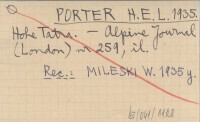 PORTER H.E.L. 1935.
Hohe Tatra. — Alpine Journal
(London) nr 259, il.
Rec.: MILESKI W. 1935 y.